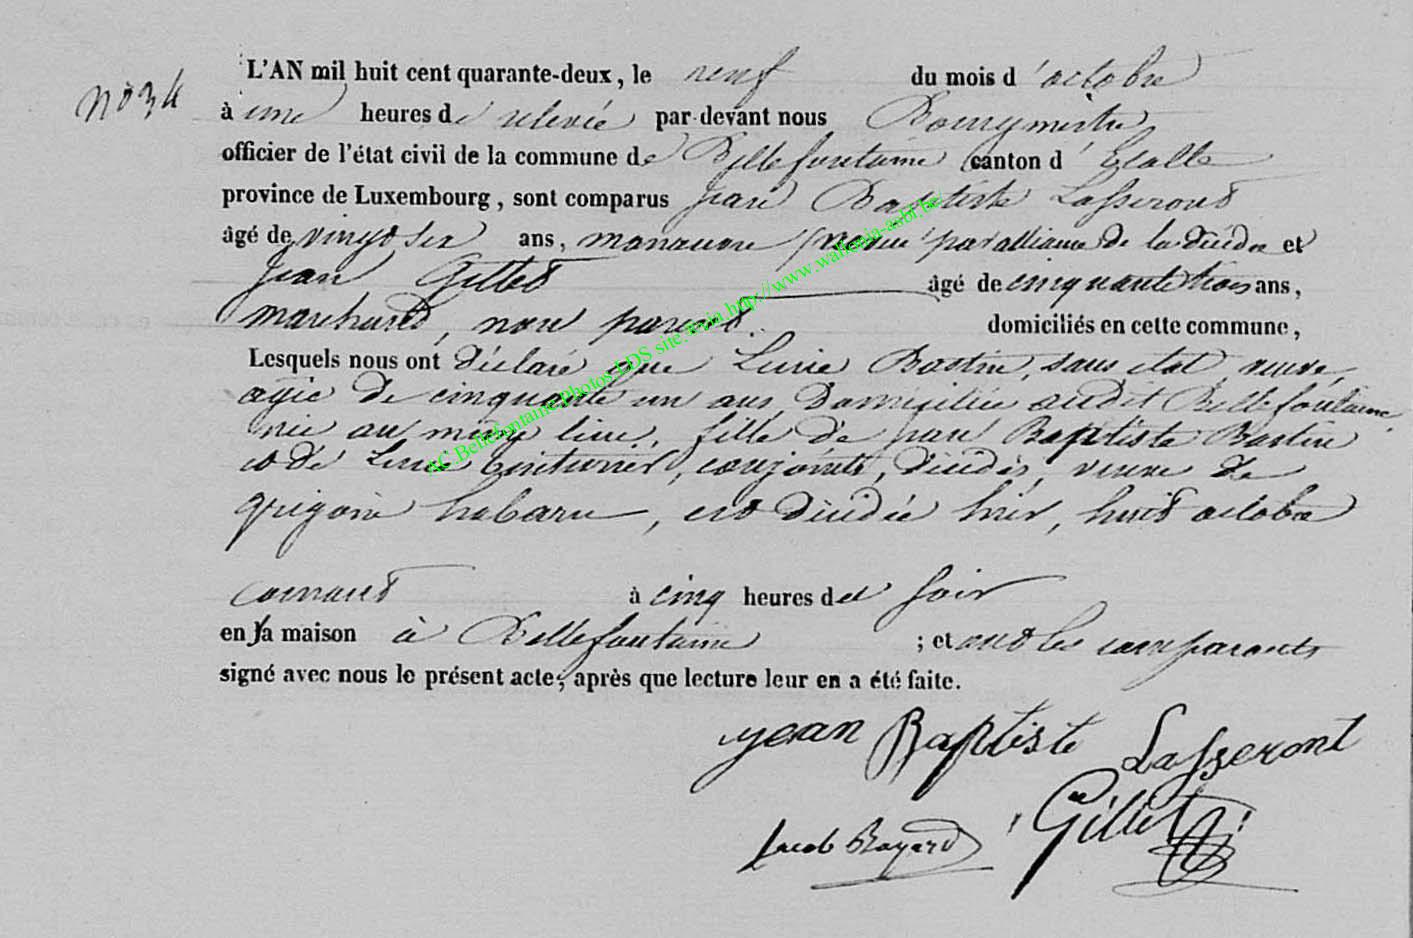 No 34
L'AN mil huit cent quarante-deux, le neuf du mois d'octobre
à une heures de relevée par devant nous Bourgmestre
officier de l'état civil de la commune de Bellefontaine canton d'Etalle
province de Luxembourg, sont comparus Jean Baptiste Lasseront
âgé de vingt six ans, manœuvre, par alliance de la décédée et
Jean Gillet âgé de cinquante trois ans,
marchand, non parent. domiciliés en cette commune,
Lesquels nous ont déclaré que Lucie Bastin, sans état, veuve,
agée de cinquante un ans, domiciliée audit Bellefontaine
née au même lieu, fille de Jean Baptiste Bastin
et de Lucie conjoints, décédés, veuve de
grégoire habaru, est décédée hier, huit octobre
courant à cinq heures du soir
en sa maison à Bellefontaine ; et ont les comparants
signé avec nous le présent acte, après que lecture leur en a été faite.
jean Baptiste Lasseront
Gillet
Jacob Bayard
AC.Bellefontaine.Photos LDS site. via http://www.wallonia-asbl.be/